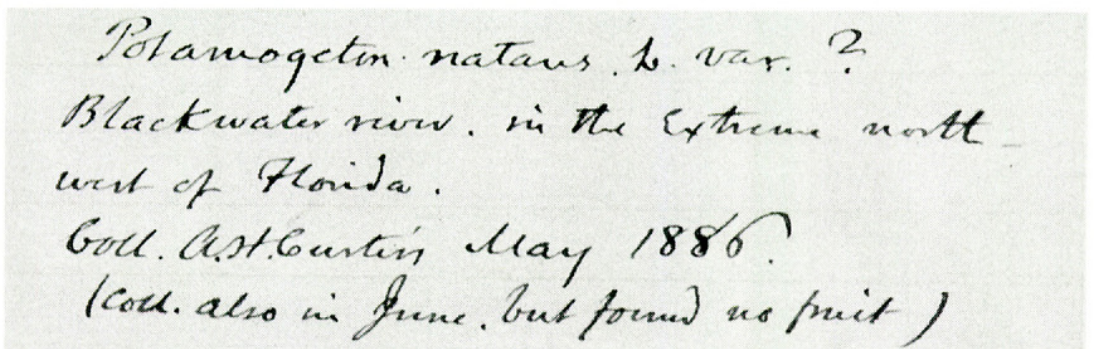 Potamogeton natans. L. var. ?
Blackwater river. in the Extreme north-
west of Florida.
Coll. A.H. Curtiss May 1886.
(Coll. also in June. but found no fruit)